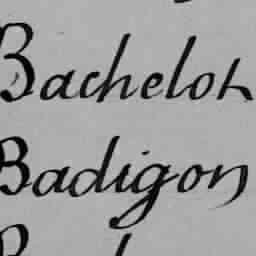 Bachelor
Badigon